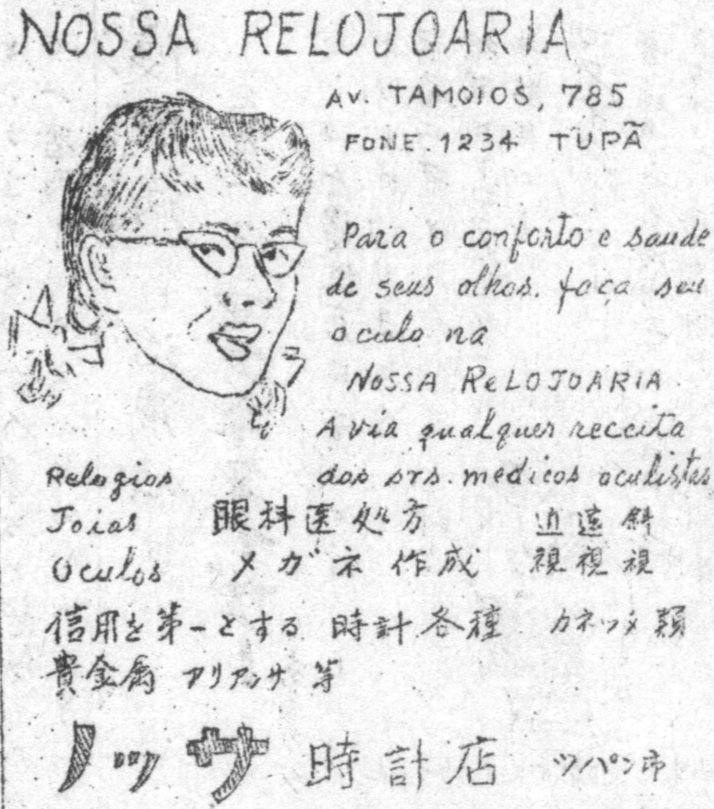 NOSSA RELOJOARIA
AV. TAMOIOS, 785
FONE. 1234 TUPÃ
Para o conforto e saude
de seus olhos. faça seu
oculo na
NOSSA ReLOJOARIA
Avia qualquer receita
dos srs. medicos oculistas
Relogios
Joias
Oculos
眼科医処方 近遠斜
メガネ作成 視視視
信用を第一とする 時計各種 カネッタ類
貴金属 アリアンサ 等
ノッサ 時計店 ツパン市